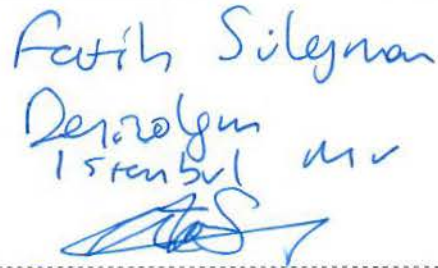 Fatih Süleyman
Denizolgun
İstanbul Mv